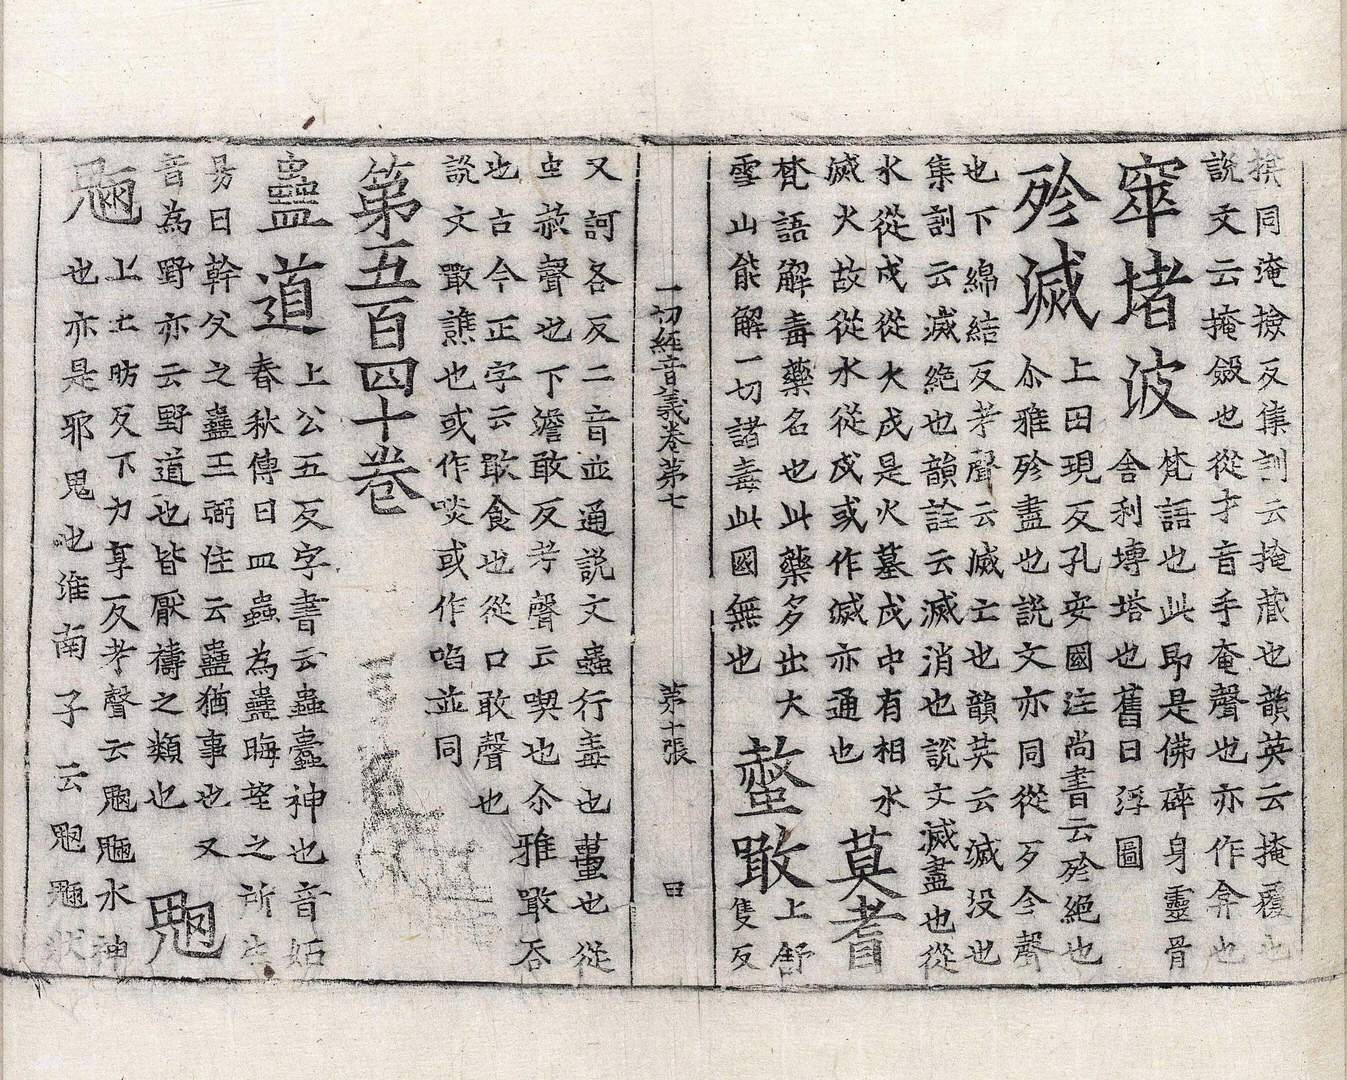 掞同淹撿反集訓云掩藏也韻英云掩覆也
說文云掩斂也從才音手奄聲也亦作弇也
窣堵波 梵語也此即是佛碎身靈骨
舍利塼塔也舊曰浮圖
殄滅 上田現反孔安國注尚書云殄絕也
尒雅殄盡也說文亦同從歹㐱聲
也下綿結反考聲云滅亡也韻英云滅没也
集訓云滅絕也韻詮云滅消也說文滅盡也從
水從戌從火戌是火墓戌中有相水
滅火故從水從戌或作㓕亦通也
莫耆
梵語解毒藥名也此藥多出大
雪山能解一切諸毒此國無也
螫噉 上舒
隻反
一切經音義卷第七 第十張 田
又訶各反二音並通說文蟲行毒也蠆也從
虫赦聲也下澹敢反考聲云喫也尒雅噉吞
也古今正字云噉食也從口敢聲也
說文噉譙也或作啖或作啗並同
第五百四十卷
蠱道 上公五反字書云蟲蠹神也音姤
春秋傳曰皿蟲為蠱晦望之所生
易曰幹父之蠱王弼注云蠱猶事也又
音為野亦云野道也皆厭禱之類也
魍魎 上亡昉反下力掌反考聲云魍魎水神
也亦是邪鬼也淮南子云魍魎狀